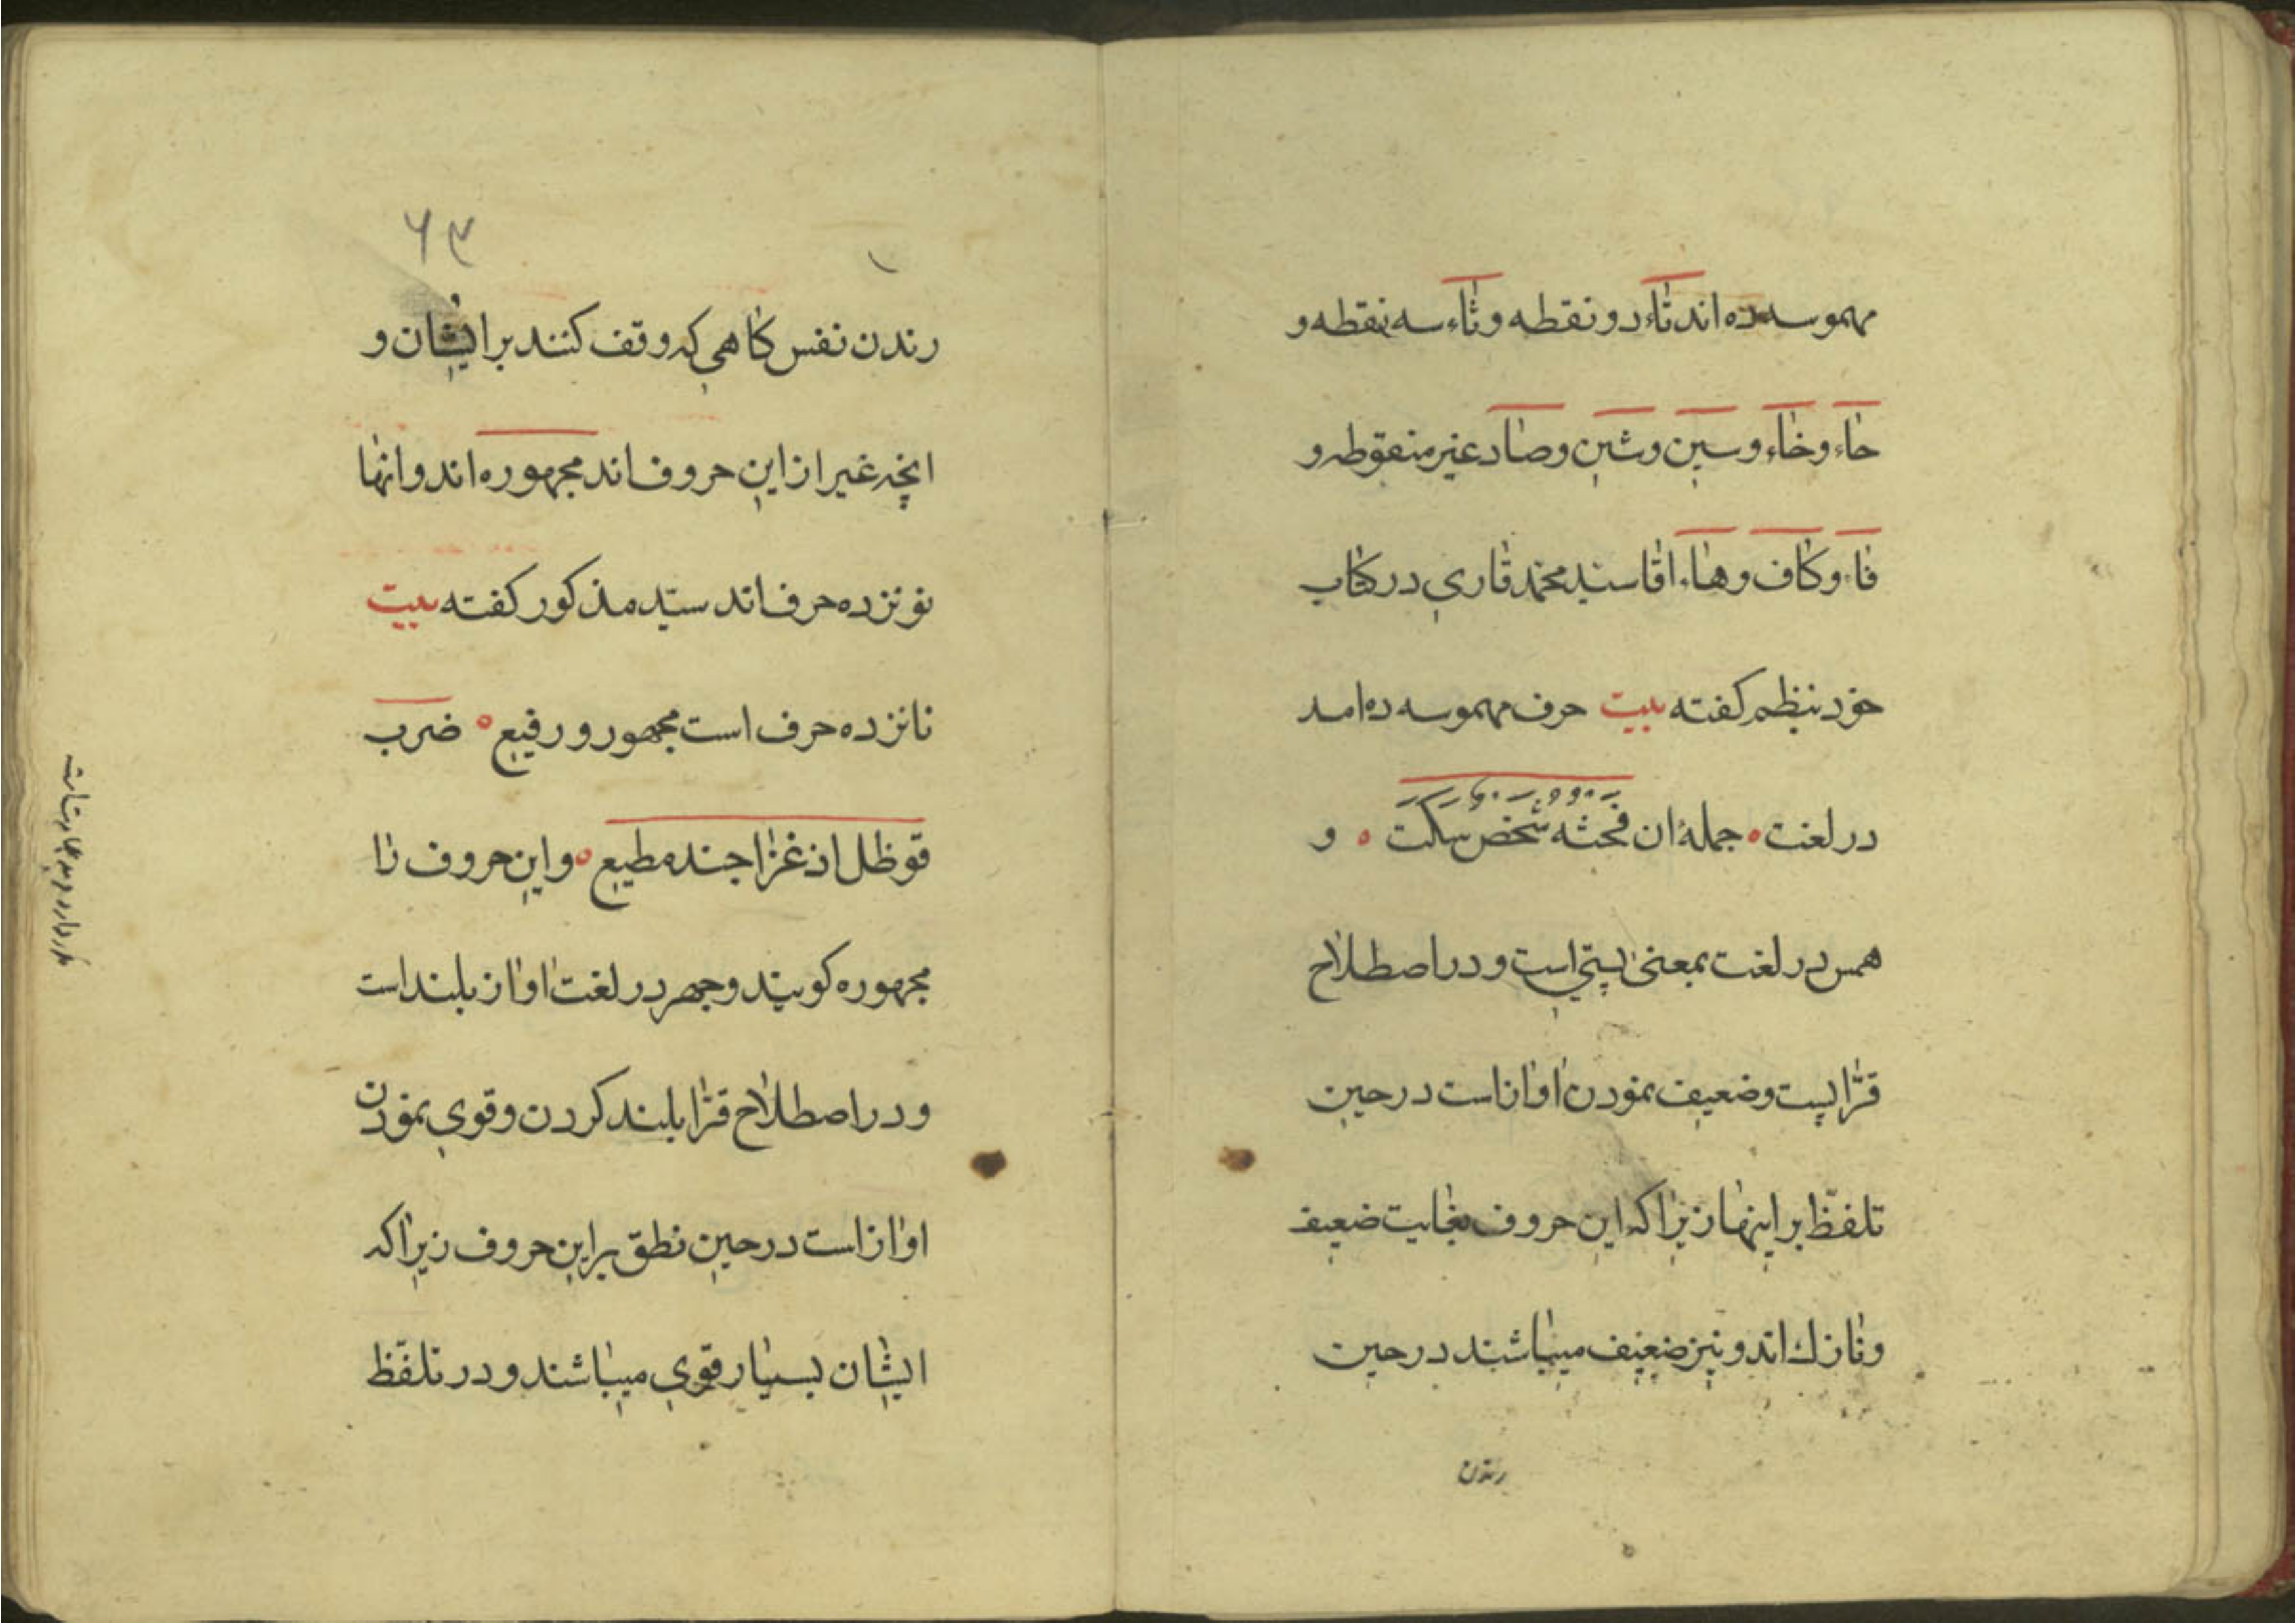 مهموسه ده اند تاء دو نقطه و ثاء سه نقطه و
حاء و خاء و سین و شین و صاد غیر منقوطه و
فاء و کاف و هاء اقا سید محمد قاری در کتاب
خود نبظم کفته بیت حرف مهموسه ده امد
در لغت ه جملهٔ ان فحثه شخص سکت ه و
همس در لغت بمعنی پستی است و در اصطلاح
قرّا پست و ضعیف نمودن اواز است در حین
تلفّظ بر اینها زیرا که این حروف بغایت ضعیف
و نازك اند و نیز ضعیف میباشند در حین
رندن
۶۳
رندن نفس کاهی که وقف کنند بر ایشان و
انچه غیر از این حروف اند مجهوره اند و انها
نونزده حرف اند سیّد مذکور کفته بیت
نانزده حرف است مجهور و رفیع ه ضرب
قو ظل اذ غزا جند مطیع ه و این حروف را
مجهوره کویند و جهر در لغت اواز بلند است
و در اصطلاح قرّا بلند کردن و قوی نمودن
اواز است در حین نطق بر این حروف زیرا که
ایشان بسیار قوی میباشند و در تلفّظ